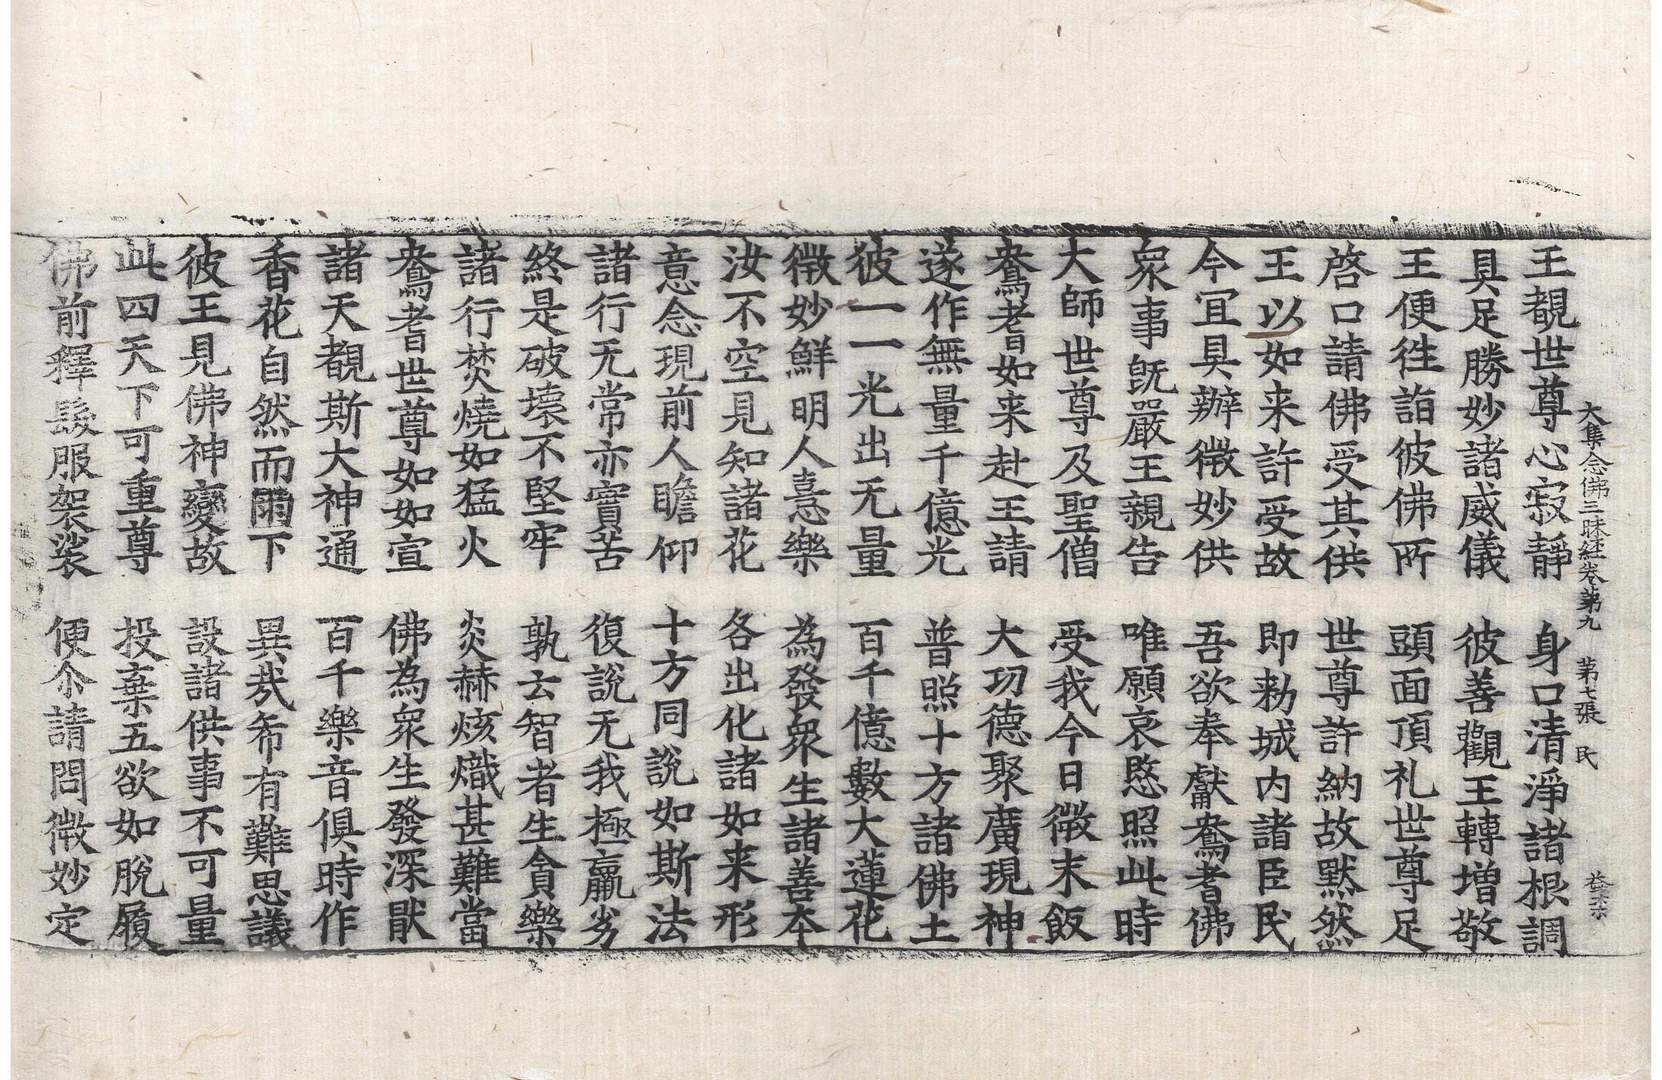 王覩世尊心寂靜　身口清淨諸根調
具足勝妙諸威儀　彼善觀王轉增敬
王便徃詣彼佛所　頭面頂礼世尊足
啓口請佛受其供　世尊許納故默然
王以如来許受故　即勑城内諸臣民
今冝具辦微妙供　吾欲奉獻鴦耆佛
衆事旣嚴王親告　唯願哀愍照此時
大師世尊及聖僧　受我今日微末飯
鴦耆如来赴王請　大㓛德聚廣現神
遂作無量千億光　普照十方諸佛土
彼一一光出无量　百千億數大蓮花
微妙鮮明人憙樂　為發衆生諸善夲
汝不空見知諸花　各出化諸如来形
意念現前人瞻仰　十方同說如斯法
諸行无常亦實苦　復說无我極羸劣
終是破壞不堅牢　孰云智者生貪樂
諸行焚燒如猛火　炎赫炫熾甚難當
鴦耆世尊如如宣　佛為衆生發深猒
諸天覩斯大神通　百千樂音俱時作
香花自然而雨下　異㢤希有難思議
彼王見佛神變故　設諸供事不可量
此四天下可重尊　投棄五欲如脫屣
佛前釋髮服袈裟　便尒請問微妙定
大集念佛三昧経卷第九　第七張　民